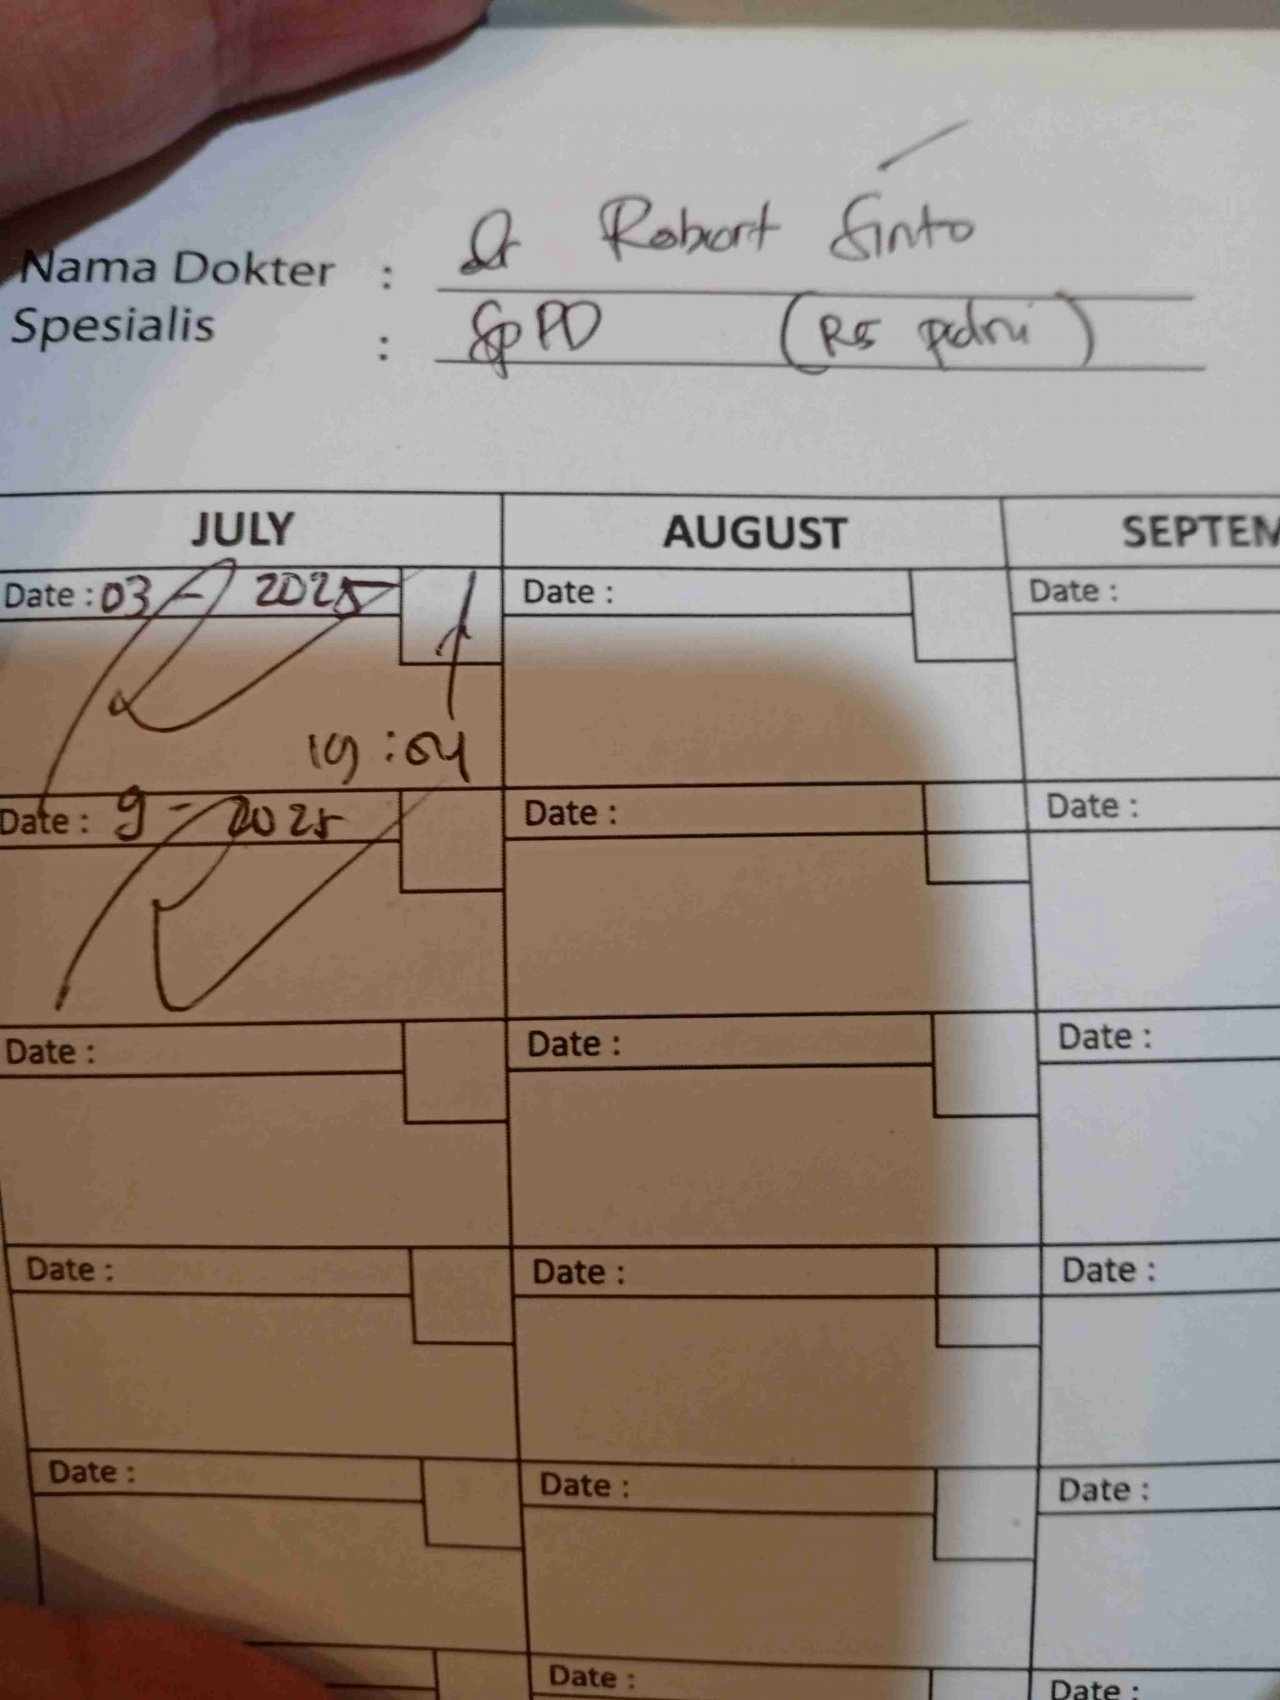 Nama Dokter : Dr Robert Sinto
Spesialis : SpPD (RS pdni)
JULY AUGUST SEPTEM
Date : 03 - 2025 Date : Date :
19 : 04
Date : 9 - 2025 Date : Date :
Date : Date : Date :
Date : Date : Date :
Date : Date : Date :
Date : Date :